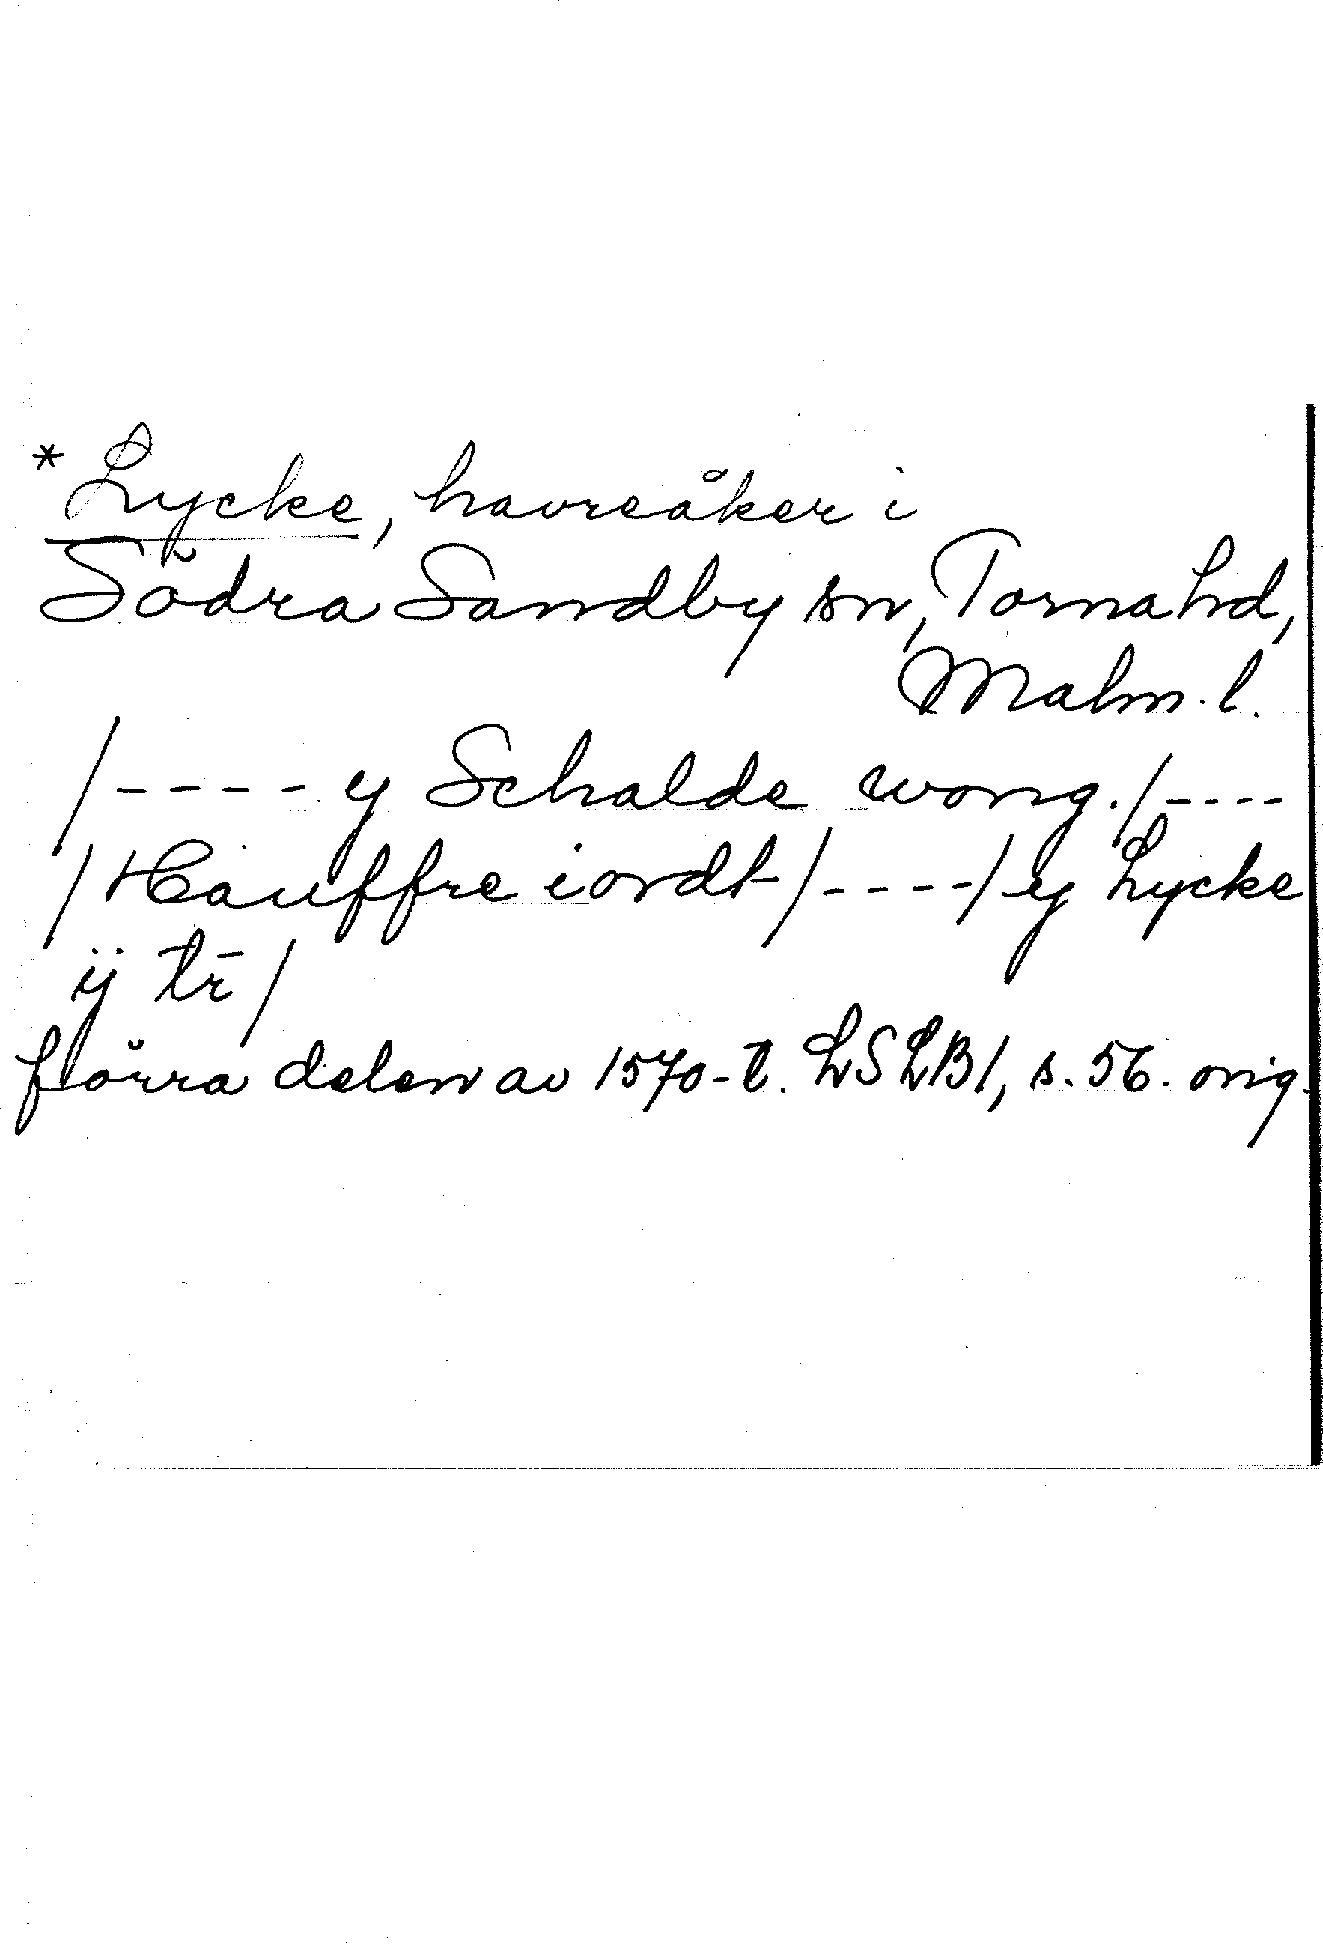 * Lycke, havreåker i
Södra Sandby sn, Torna hd,
Malm. l.
/---- y Schalde wong. /----
/ Hauffre iordt /----/ y Lycke
ÿ tr̄ /
förra delen av 1570-t. LSLB1, s. 56. orig.